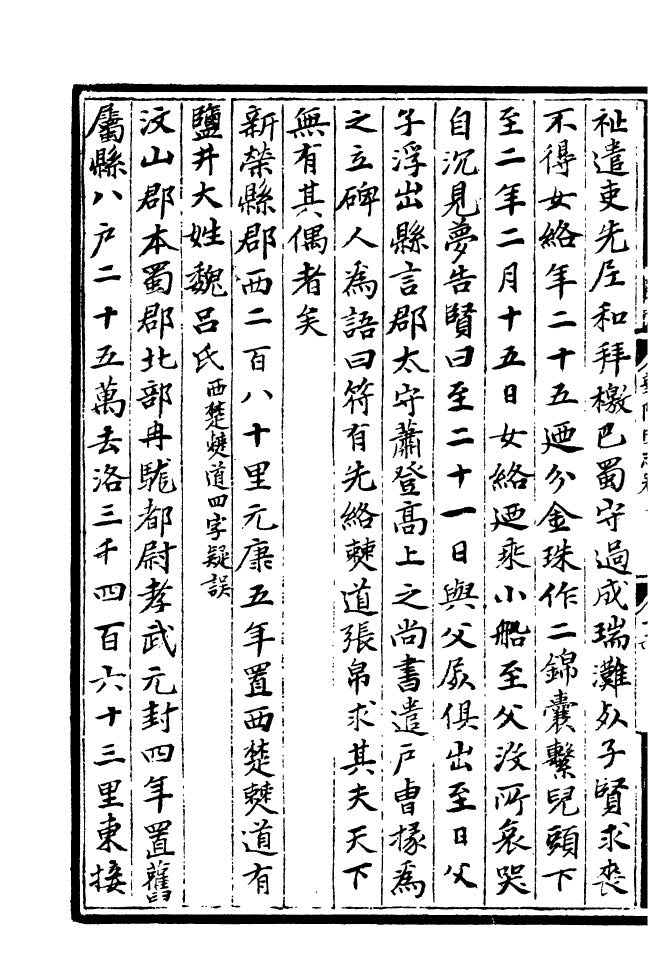 祉遣吏先尼和拜檄巴蜀守過成瑞灘死子賢求喪
不得女絡年二十五迺分金珠作二錦囊繫兒頭下
至二年二月十五日女絡迺乘小船至父沒所哀哭
自沉見夢告賢曰至二十一日與父屍俱出至日父
子浮出縣言郡太守蕭登高上之尚書遣戶曹掾為
之立碑人為語曰符有先絡僰道張帛求其夫天下
無有其偶者矣
新樂縣郡西二百八十里元康五年置西楚僰道有
鹽井大姓魏呂氏西楚僰道四字疑誤
汶山郡本蜀郡北部冉駹都尉孝武元封四年置舊
屬縣八戶二十五萬去洛三千四百六十三里東接